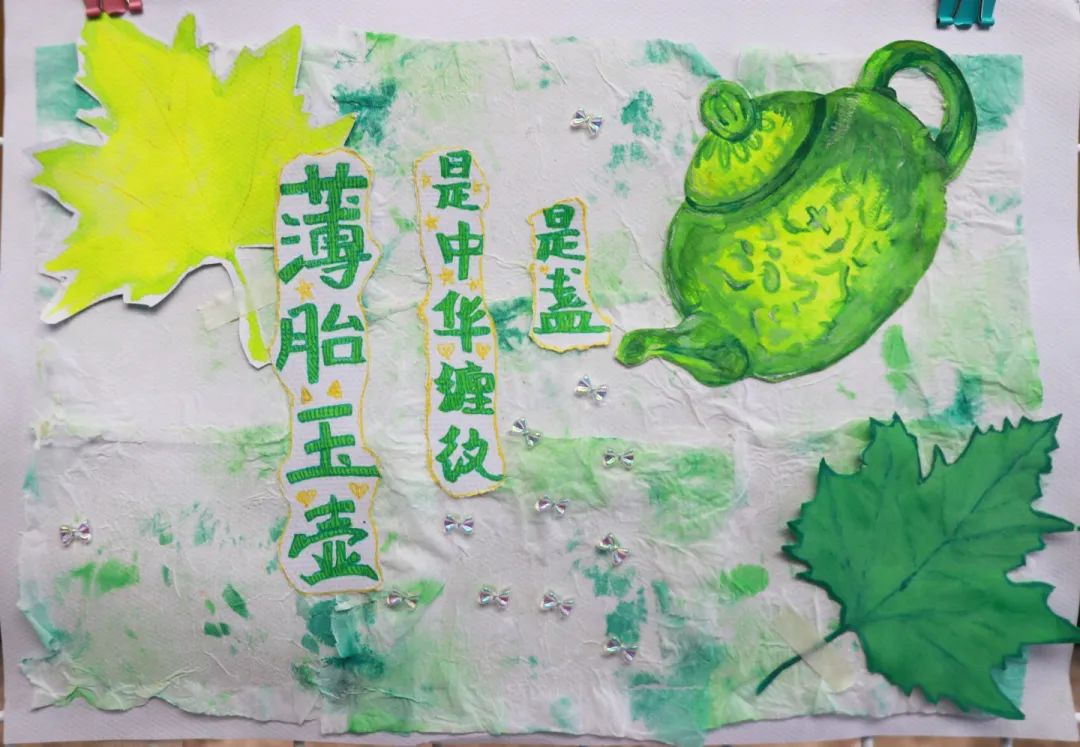 是盏
是中华缠纹
薄胎玉壶